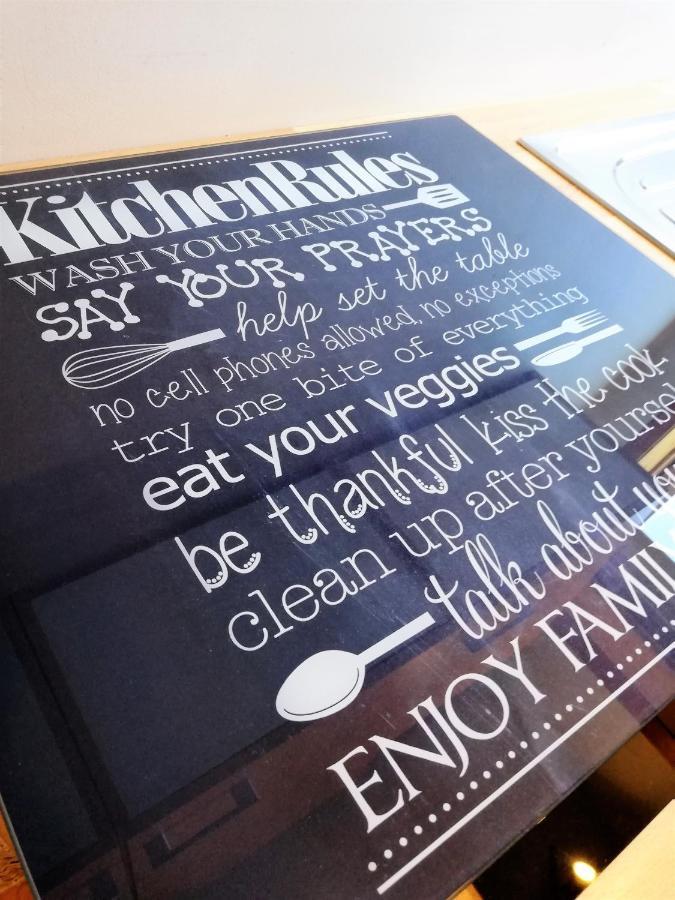 Kitchen Rules
WASH YOUR HANDS
SAY YOUR PRAYERS
help set the table
no cell phones allowed, no exceptions
try one bite of everything
eat your veggies
be thankful kiss the cook
clean up after yourself
talk about
ENJOY